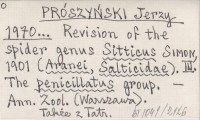 PRÓSZYŃSKI Jerzy
1970... Revision of the
spider genus Sitticus SIMON,
1901 (Aranei, Salticidae). III.
The penicillatus group. —
Ann. Zool. (Warszawa).
Także z Tatr.